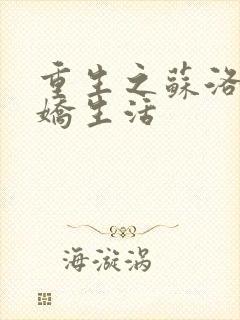 重生之蘇洛
嬌生活
海漩涡